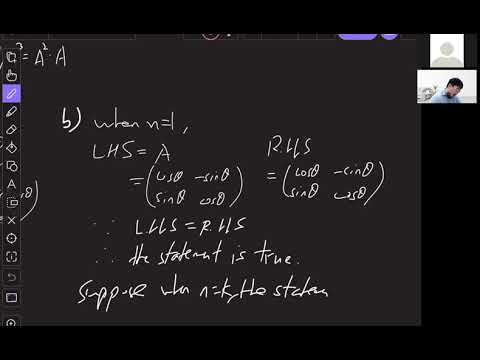 ³ = A²·A
b) when n=1,
LHS = A
R.H.S
= (cosθ -sinθ
sinθ cosθ)
= (cosθ -sinθ
sinθ cosθ)
θ)
∵ L.H.S = R.H.S
∴ the statement is true.
Suppose when n=k, the statem